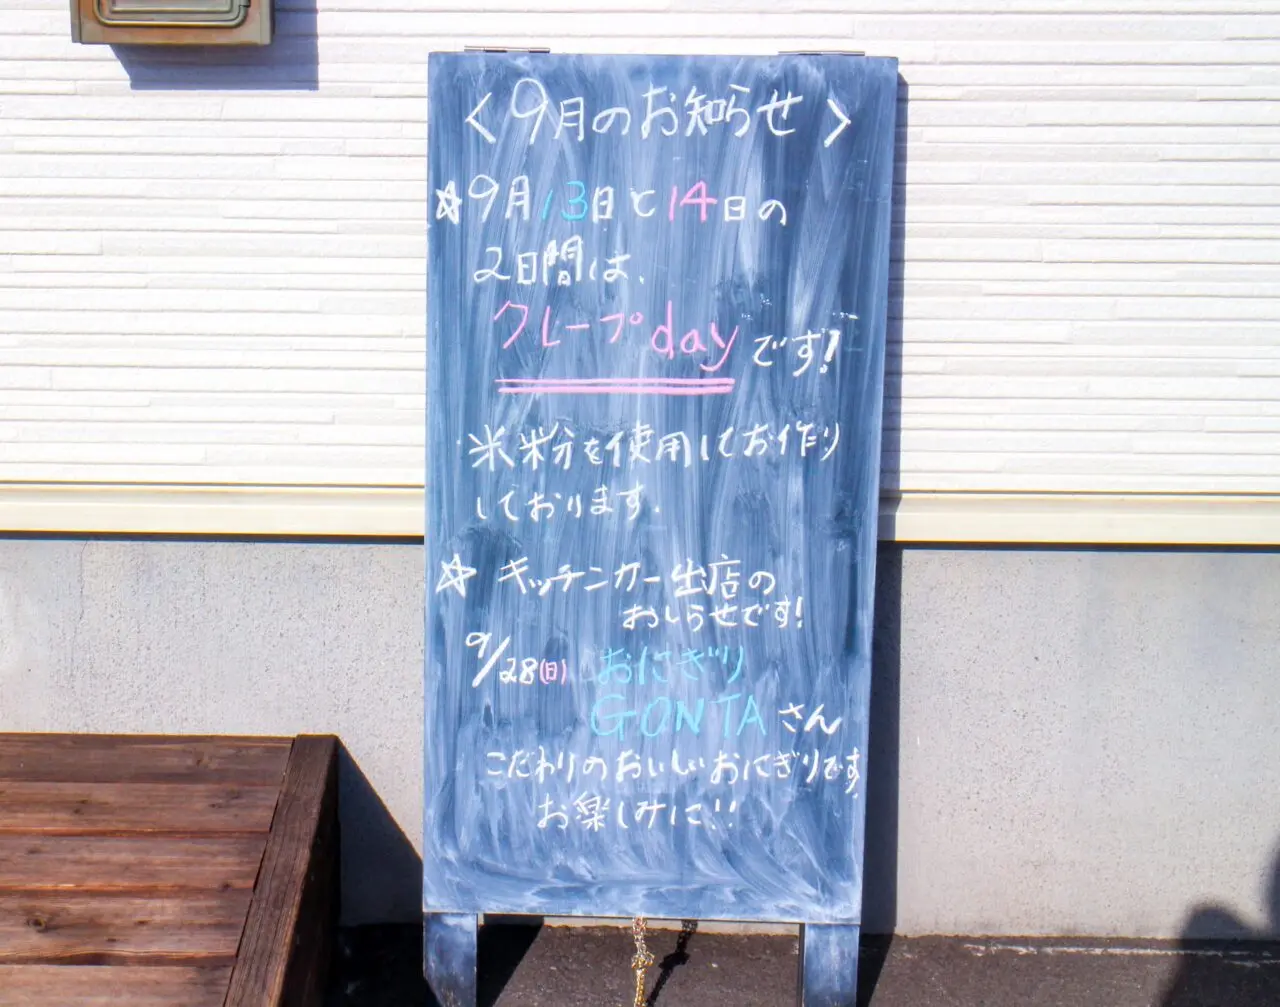 <9月のお知らせ>
☆9月13日と14日の
2日間は、
クレープdayです!
米粉を使用してお作り
しております.
☆キッチンカー出店の
おしらせです!
9/28(日) おにぎり
GONTAさん
こだわりのおいしいおにぎりです.
お楽しみに!!